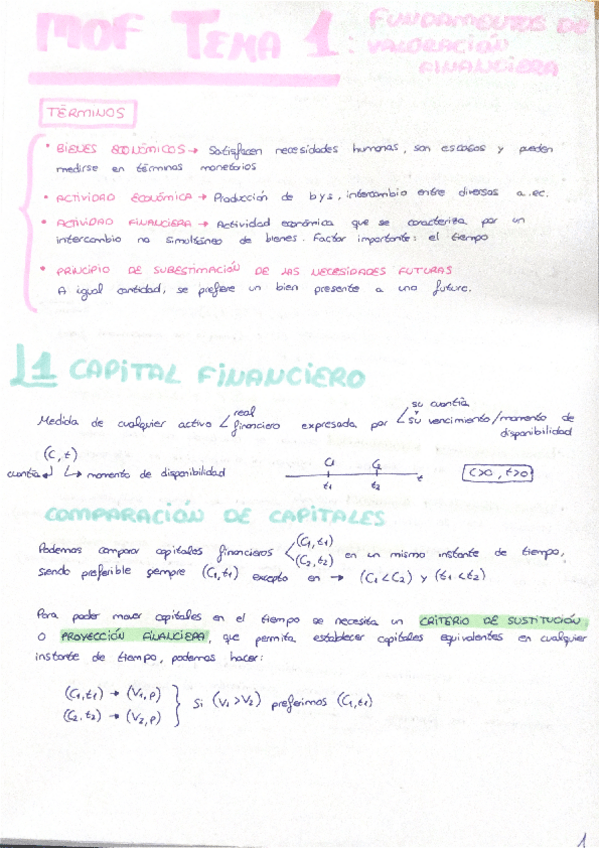 MOF TEMA 1: FUNDAMENTOS DE
VALORACIÓN
FINANCIERA
TÉRMINOS
• BIENES ECONÓMICOS → Satisfacen necesidades humanas, son escasos y pueden
medirse en términos monetarios
• ACTIVIDAD ECONÓMICA → Producción de b y s, intercambio entre diversos a.ec.
• ACTIVIDAD FINANCIERA → Actividad económica que se caracteriza por un
intercambio no simultáneo de bienes. Factor importante: el tiempo
• PRINCIPIO DE SUBESTIMACIÓN DE LAS NECESIDADES FUTURAS
A igual cantidad, se prefiere un bien presente a uno futuro.
1 CAPITAL FINANCIERO
real su cuantía
Medida de cualquier activo < financiero expresada por < su vencimiento/momento de
disponibilidad
(C, t)
cuantía ↲ ↳ momento de disponibilidad
C1 C2
t1 t2 t
C>0, t>0
COMPARACIÓN DE CAPITALES
Podemos comparar capitales financieros < (C1, t1) (C2, t2) en un mismo instante de tiempo,
siendo preferible siempre (C1, t1) excepto en → (C1 < C2) y (t1 < t2)
Para poder mover capitales en el tiempo se necesita un CRITERIO DE SUSTITUCIÓN
O PROYECCIÓN FINANCIERA, que permita establecer capitales equivalentes en cualquier
instante de tiempo, podemos hacer:
(C1, t1) → (V1, p)
(C2, t2) → (V2, p) } Si (V1 > V2) preferimos (C1, t1)
1